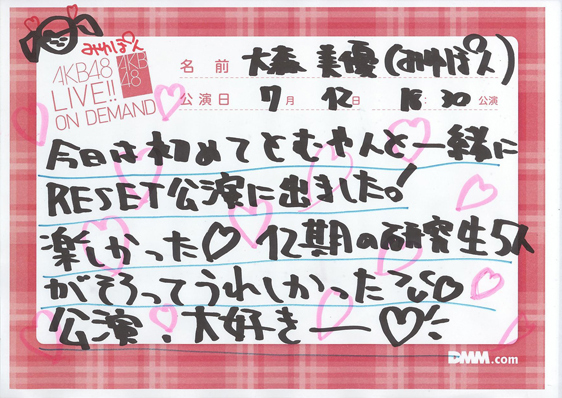 みゆぽん
AKB48
LIVE!!
ON DEMAND
AKB
48
名前 大森 美優(みゆぽん)
公演日 7月 12日 18:30 公演
今日は初めてとむやんと一緒に
RESET公演に出ました!
楽しかった♡ 12期の研究生5人
がそろってうれしかった
公演、大好きー♡
DMM.com